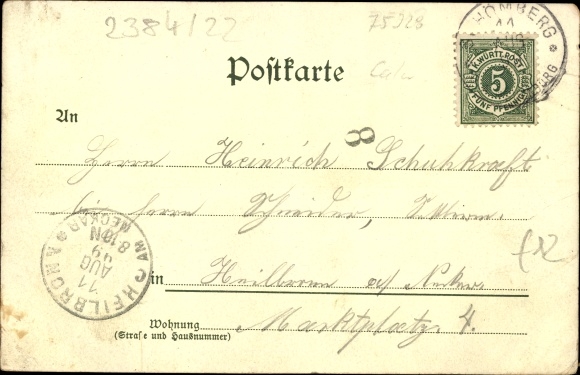 2384/22
75328
HOMBERG
11
AUG
K. WÜRTT. POST
5
FÜNF PFENNIG
Postkarte
An
8
Herrn Heinrich Schuhkraft
b/ Herrn Schneider,
HEILBRONN
AM NECKAR
11
AUG
99
8-10 N
C
in Heilbronn a/ Neckar
Wohnung
(Straße und Hausnummer)
Marktplatz 4.